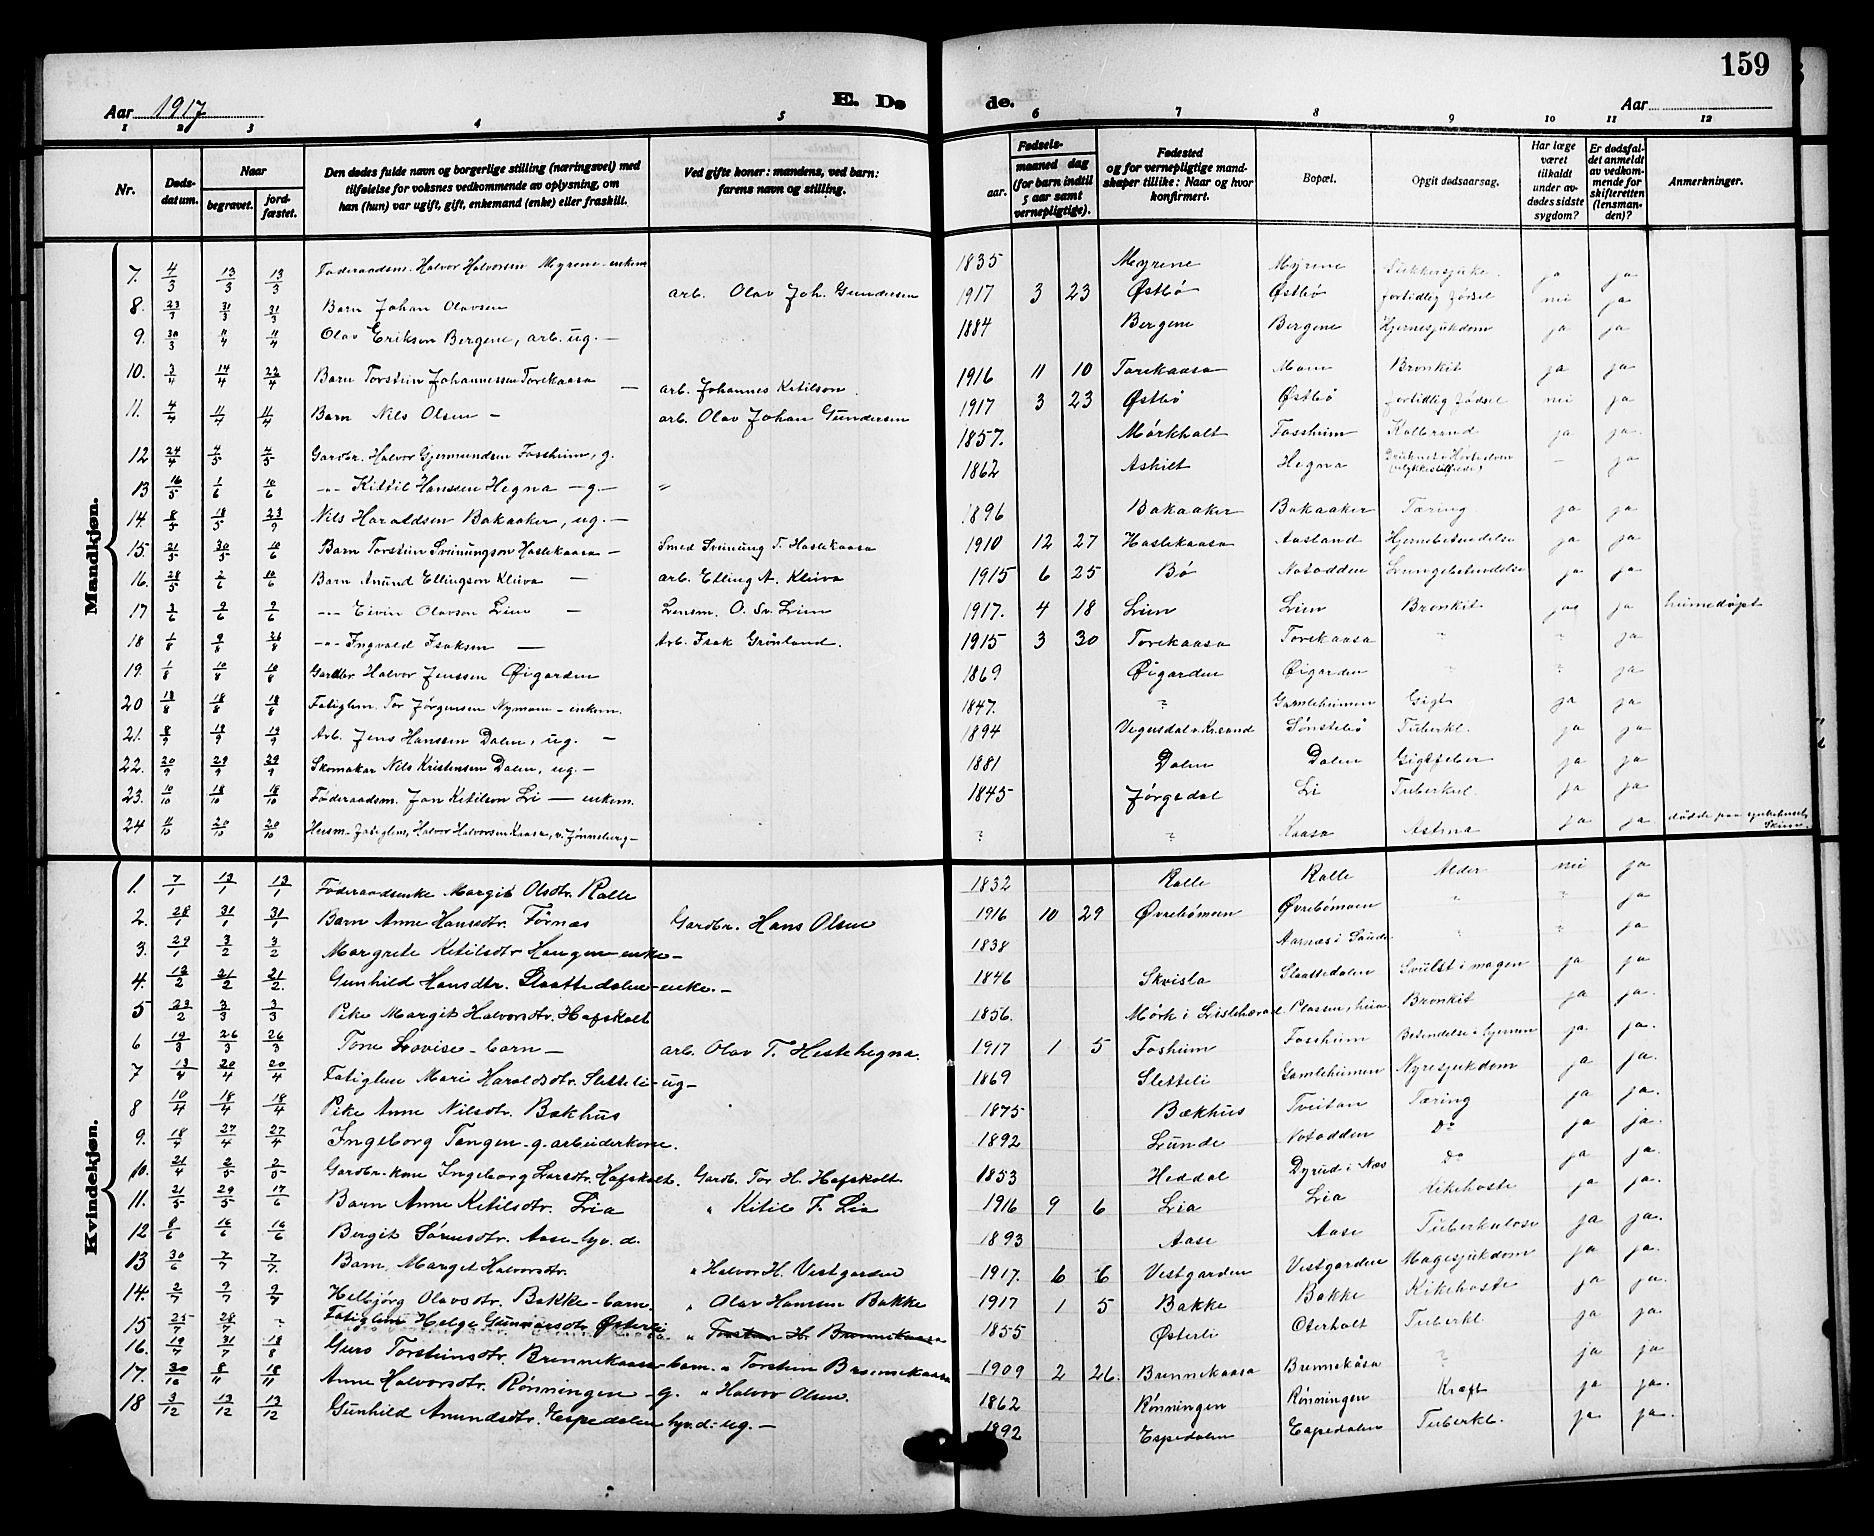 159
Aar 1917
E. Dø
de.
Aar
1 2 3 4 5 6 7 8 9 10 11 12
Nr.
Døds-datum.
Naar
begravet.
jord-fæstet.
Den dødes fulde navn og borgerlige stilling (næringsvei) med tilføielse for voksnes vedkommende av oplysning, om han (hun) var ugift, gift, enkemand (enke) eller fraskilt.
Ved gifte koner: mandens, ved barn: farens navn og stilling.
Fødsels-
aar.
maaned dag
(for barn indtil 5 aar samt vernepligtige).
Fødested og for vernepligtige mandskaper tillike: Naar og hvor konfirmert.
Bopæl.
Opgit dødsaarsag.
Har læge været tilkaldt under avdødes sidste sygdom?
Er dødsfaldet anmeldt av vedkommende for skifteretten (lensmanden)?
Anmerkninger.
Mandkjøn.
7. 4/3 13/3 13/3 Føderaadsm. Halvor Halvorsen Myrene - enkem 1835 Myrene Myrene Sukkersjuke ja ja
8. 23/3 31/3 31/3 Barn Johan Olavsen arb. Olav Joh. Gundersen 1917 3 23 Østbö Østbö fortidlig fødsel nei ja
9. 30/3 11/4 11/4 Olav Erikson Bergene, arb. ug. - 1884 Bergene Bergene Hjernesjukdom ja ja
10. 3/4 14/4 22/4 Barn Torstein Johannessen Torekaasa - arb. Johannes Ketilson 1916 11 10 Torekaasa Moen Bronkit ja ja
11. 4/4 11/4 11/4 Barn Nils Olsen - arb. Olav Johan Gundersen 1917 3 23 Østbö Østbö fortidlig fødsel nei ja
12 24/4 4/5 4/5 Gardbr. Halvor Gjermundsen Fossheim, g. 1857. Mørkholt Fossheim Kolbrand ja ja.
13 16/5 1/6 10/6 -"- Kittil Hanssen Hegna - g - " 1862 Askilt Hegna (ulykkestilfælde) - ja
14. 8/5 18/5 23/9 Nils Haraldsen Bakaaker, ug. - 1896 Bakaaker Bakaaker Tæring ja ja
15. 21/5 30/5 10/6 Barn Torstein Sveinungson Haslekaasa - Smed Sveinung T. Haslekaasa 1910 12 27 Haslekaasa Aasland Hjernebetændelse ja ja
16. 28/5 2/6 10/6 Barn Anund Ellingson Kleiva - arb. Elling A. Kleiva 1915 6 25 Bö Notodden Lungebetændelse ja ja
17 3/6 9/6 9/6 -"- Eivin Olavson Lien - Lensm. O. Sv. Lien 1917. 4 18 Lien Lien Bronkit ja ja heimedøpt
18 1/8 9/8 26/8 -"- Ingvald Isaksen - Arb. Isak Grønland. 1915 3 30 Torekaasa Torekaasa " " ja
19. 1/8 10/8 10/8 Gardbr Halvor Jenssen Øigarden 1869 Øigarden Øigarden " " ja
20 13/8 18/8 18/8 Fatiglem. Tor Jørgensen Nymoen - enkem. 1847. " Gamleheimen Gigt ja ja
21. 8/9 19/9 19/9 Arb. Jens Hansen Dalen, ug. - 1894 Vegusdal v. Kr.sand Sønstebö Tuberkl. ja ja
22. 20/9 29/9 29/9 Skomakar Nils Kristensen Dalen, ug. - 1881 Dalen Dalen Gigtfeber ja ja
23. 10/10 18/10 18/10 Føderaadsm. Jon Ketilson Li - enkem. 1845 Jørgedal Li Tuberkul. ja ja
24 11/10 20/10 20/10 Husm. Fatiglem, Halvor Halvorsen Kaasa, v. Jønneberg - ? ? Kaasa Astma ja ja dødde paa sjukehuset Skien.
Kvindekjøn.
1. 7/1 13/1 13/1 Føderaadsenke Margit Olsdtr. Kalle 1832 Kalle Kalle Alder nei ja
2. 28/1 31/1 31/1 Barn Anne Hansdtr. Førnæs Gardbr. Hans Olsen 1916 10 29 Øvrebömoen Øvrebömoen " " ja
3. 29/1 3/2 3/2 Margrete Ketilsdtr Haugen - enke - 1838 Aarnæs i Saude " " ja
4. 12/2 21/2 21/2. Gunhild Hansdtr. Slaattedalen - enke. - 1846 Skvisla Slaattedalen Svulst i magen ja ja
5 23/2 3/3 3/3 Pike Margit Halvorsdtr. Hafskolt 1856. Mørk i Lisleherad Plassen, Bronkit ja ja.
6 19/3 26/3 26/3 Tone Lovise - barn - arb. Olav T. Hestehegna. 1917 1 5 Fosheim Fossheim Betendelse i hjernen ja ja
7 13/4 20/4 20/4 Fatiglem Mari Haraldsdtr. Sletteli - ug - 1869 Sletteli Gamleheimen Nyresjukdom ja ja.
8 10/4 18/4 18/4 Pike Anne Nilsdtr. Bækhus 1875 Bækhus Tveitan Tæring ja ja.
9. 18/4 27/4 27/4 Ingeborg Tangen - g. arbeiderkone. 1892 Lunde Notodden Do ja ja.
10. 21/4 2/5 2/5 Gardbr-kone Ingeborg Larsdtr. Hafskolt. Gardb. Tor H. Hafskolt 1853 Heddal Dyrud i Næs Do ja ja.
11. 21/5 29/5 17/6 Barn Anne Ketilsdtr. Lia " Ketil F. Lia 1916 9 6 Lia Lia Kikehoste ja ja.
12 8/6 16/6 16/6 Bergit Sørensdtr. Aase - hjv. d. 1893 Aase Aase Tuberkulose ja ja.
13 30/6 7/7 7/7. Barn, Marget Halvorsdtr. " Halvor H. Vestgarden 1917. 6 6 Vestgarden Vestgarden Magesjukdom ja ja.
14. 2/7 9/7 9/7 Helbjörg Olavsdtr. Bakke - barn. " Olav Hansen Bakke 1917 1 5 Bakke Bakke Kikehoste ja ja.
15 25/7 28/7 " Fatiglem Helge Gunnarsdtr Østerli " Torstein H. Brennekaasa 1855 Østerli Oterholt Tuberkl. ja ja
16. 19/7 31/7 18/8 Guro Torsteinsdtr. Brennekaasa - barn. " Torstein Brennekaasa 1909 2 26. Brennekaasa Brennekåsa " ja ja
17. 30/10 8/11 18/11 Anne Halvorsdtr. Rønningen - g. " Halvor Olsen. 1862 Rønningen Rønningen Kræft ja ja.
18 3/12 13/12 13/12 Gunhild Anundsdtr. Espedalen hjv.d: ug. - 1892 Espedalen Espedalen Tuberkl. ja ja.